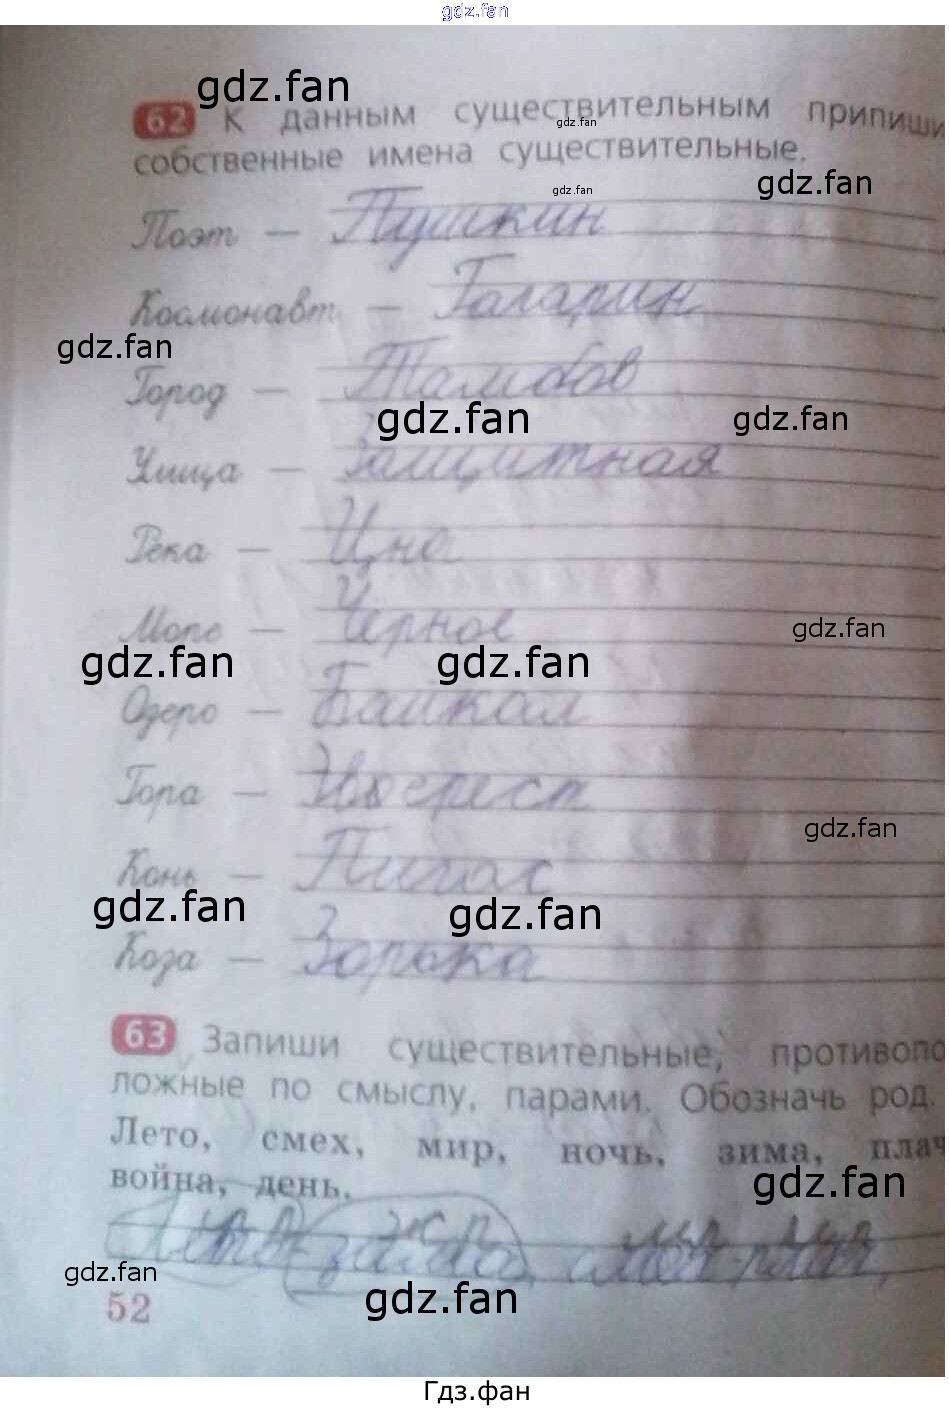 gdz.fan
gdz.fan
62 К данным существительным припиши
gdz.fan
собственные имена существительные.
gdz.fan
gdz.fan
Поэт — Пушкин
Космонавт — Гагарин
gdz.fan
Город — Тамбов
gdz.fan
gdz.fan
Улица — Защитная
Река — Цна
Море — Чёрное
gdz.fan
gdz.fan
gdz.fan
Озеро — Байкал
Гора — Эверест
gdz.fan
Конь — Пигас
gdz.fan
gdz.fan
Коза — Зорька
63 Запиши существительные, противопо
ложные по смыслу, парами. Обозначь род.
Лето, смех, мир, ночь, зима, плач
война, день.
gdz.fan
Лето зима, смех плач,
gdz.fan
gdz.fan
52
Гдз.фан